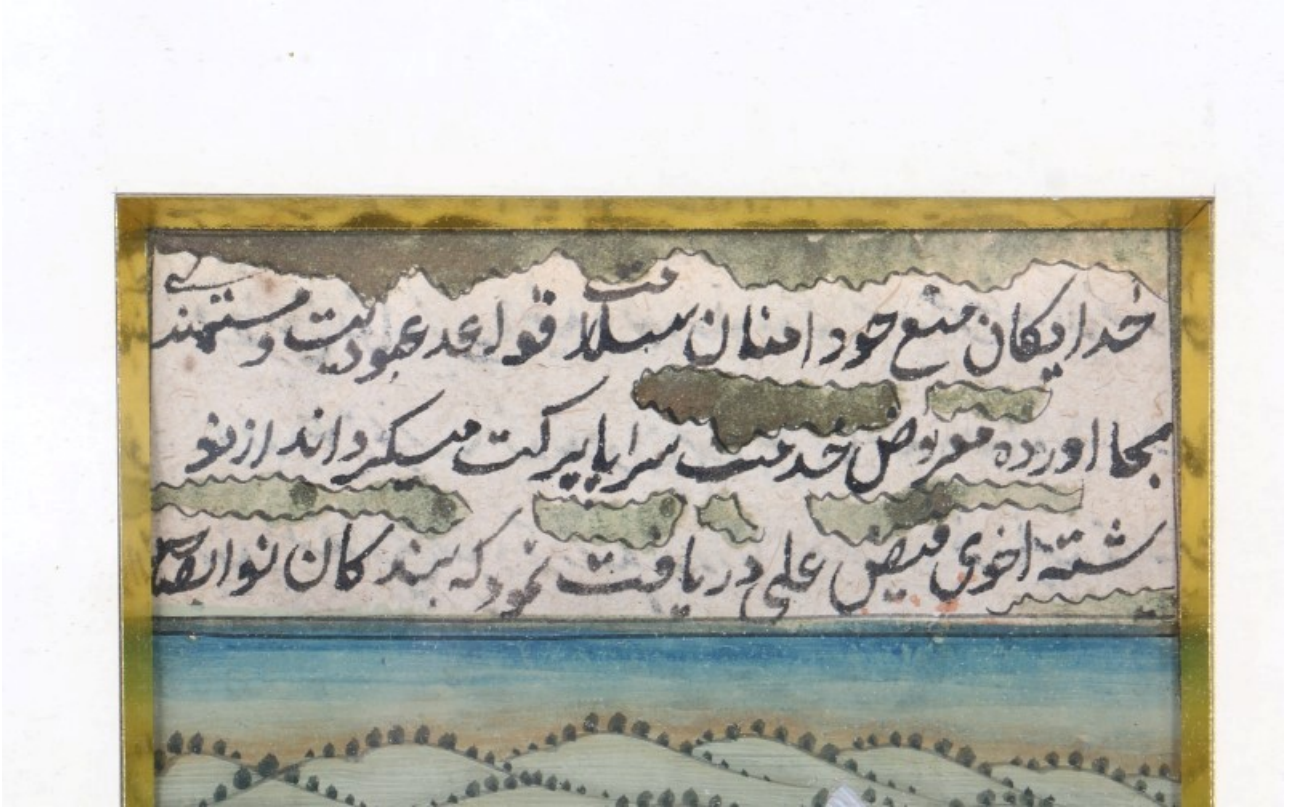 خدایکان منبع جود امتنان سلامت قواعد عبودیت و مستمندی
بجا آورده معروض خدمت سراپا برکت میکرداند از نو
شته اخوی فیض علی دریافت نمود که بندکان نواب